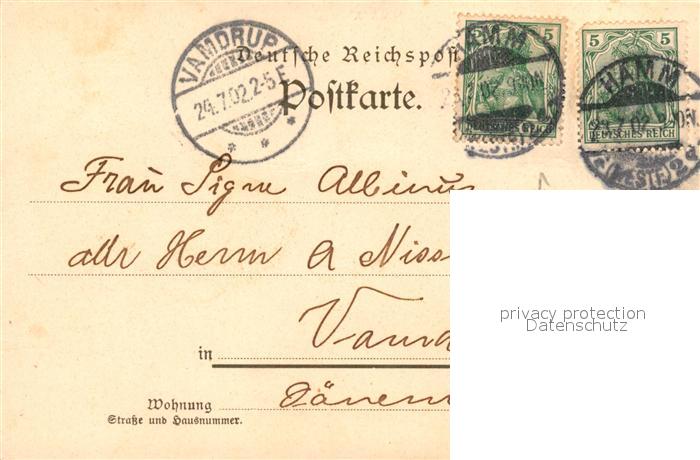 VAMDRUP
24.7.02.2-5E
Deutsche Reichspost
Postkarte.
5 5
HAMM
DEUTSCHES REICH
5 5
HAMM
DEUTSCHES REICH
(WESTF.)
Frau Signe Albinus
adr Herrn A Niss
Vamd
in
Dänem
Wohnung
Straße und Hausnummer.
privacy protection
Datenschutz